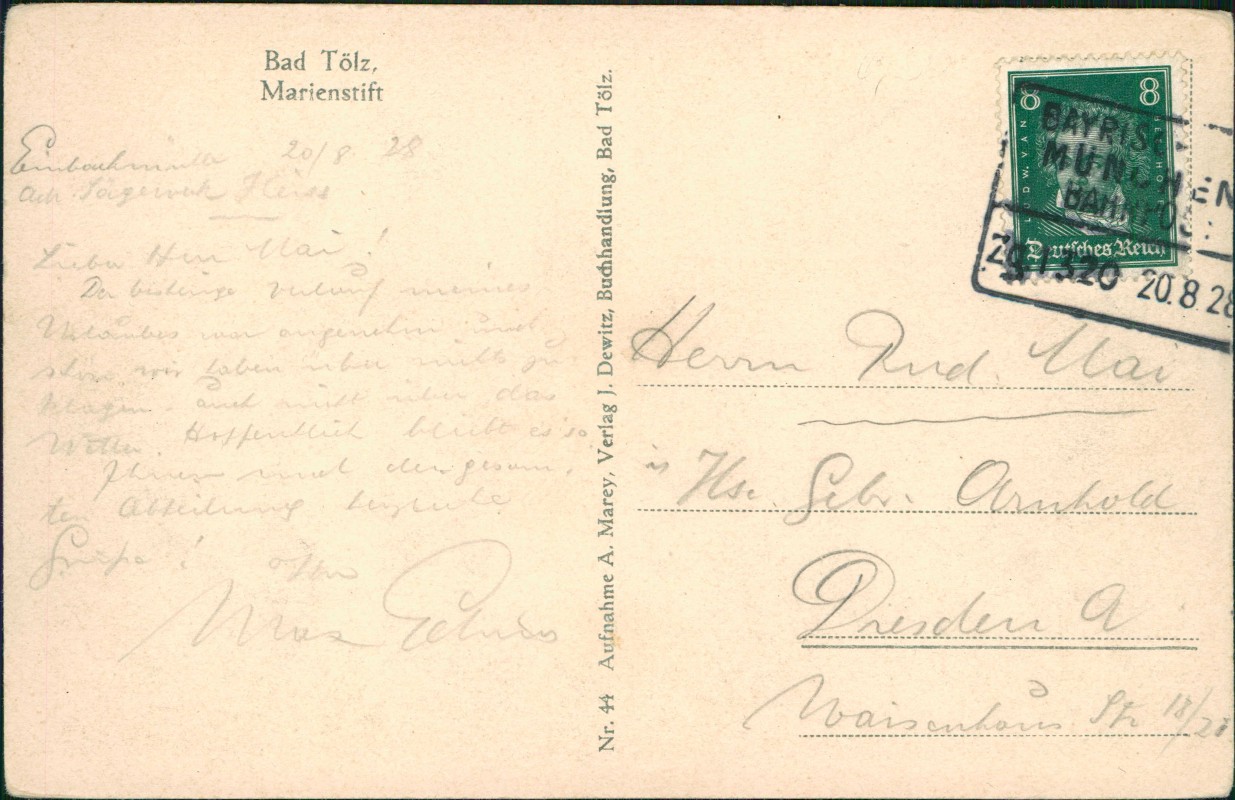 Bad Tölz,
Marienstift
20/8 28
Sägewerk Heiss
Lieber Herr Mai!
Der bisherige Verlauf meines
Urlaubes war angenehm und
schön, wir haben über nichts zu
klagen, auch nicht über das
Wetter. Hoffentlich bleibt es so.
Ihnen und der gesam-
ten Abteilung herzliche
Grüße! Ihr
Max
Nr. 44 Aufnahme A. Marey, Verlag J. Dewitz, Buchhandlung, Bad Tölz.
8 8
LUDW. VAN BEETHOVEN
Deutsches Reich
BAYRISCH
MÜNCHEN
BAHNPO
ZG 1320 20.8.28
Herrn Rud. Mai
Hse. Gebr. Arnhold
Dresden A
Waisenhaus Str 18/